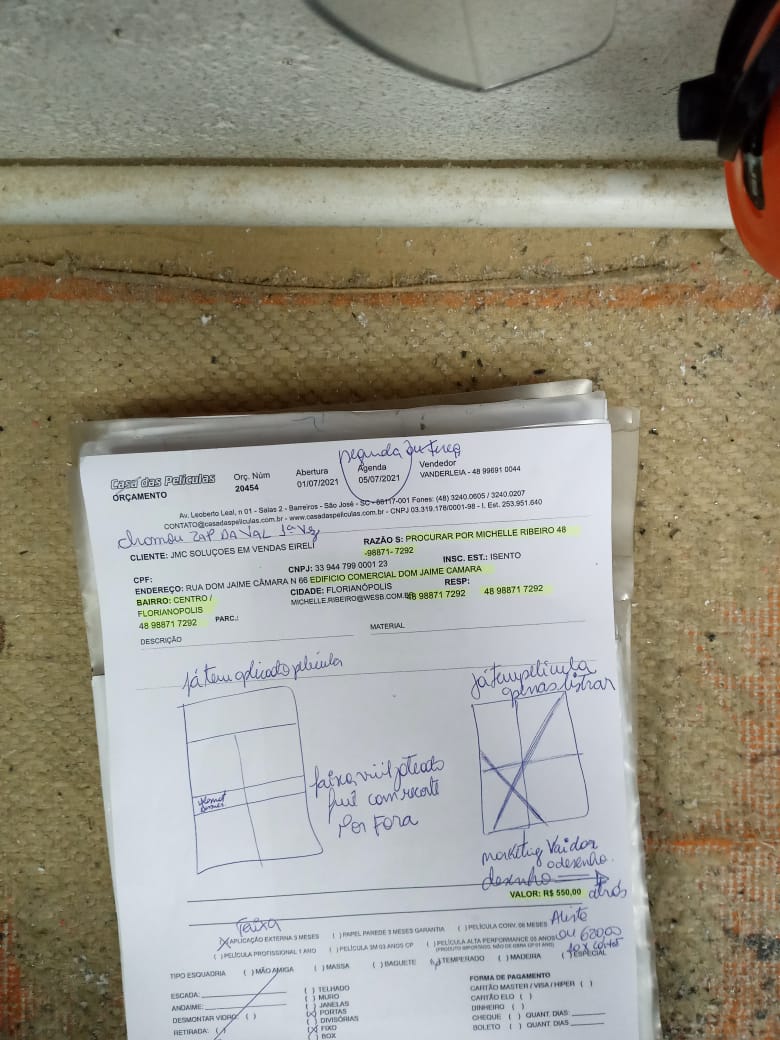 segunda ou terça
Casa das Películas
ORÇAMENTO
Orç. Núm
20454
Abertura
01/07/2021
Agenda
05/07/2021
Vendedor
VANDERLEIA - 48 99691 0044
Av. Leoberto Leal, n 01 - Salas 2 - Barreiros - São José - SC - 88117-001 Fones: (48) 3240.0605 / 3240.0207
CONTATO@casadaspeliculas.com.br - www.casadaspeliculas.com.br - CNPJ 03.319.178/0001-98 - I. Est. 253.951.640
chamou ZAP DA VAL 1ª vz
CLIENTE: JMC SOLUÇOES EM VENDAS EIRELI
RAZÃO S: PROCURAR POR MICHELLE RIBEIRO 48
-98871- 7292
CPF:
CNPJ: 33 944 799 0001 23
INSC. EST.: ISENTO
ENDEREÇO: RUA DOM JAIME CÂMARA N 66 EDIFICIO COMERCIAL DOM JAIME CAMARA
BAIRRO: CENTRO /
FLORIANOPOLIS
48 98871 7292
CIDADE: FLORIANÓPOLIS
MICHELLE.RIBEIRO@WESB.COM.BR
48 98871 7292
RESP:
48 98871 7292
PARC.:
DESCRIÇÃO
MATERIAL
já tem aplicado película
já tem pelicula
apenas listrar
faixa vinil jateado
com recorte
Por FORA
marketing Vai dar
o desenho.
desenho
atrás
VALOR: R$ 550,00
Faixa
(X) APLICAÇÃO EXTERNA 3 MESES ( ) PAPEL PAREDE 3 MESES GARANTIA ( ) PELÍCULA CONV. 06 MESES
( ) PELÍCULA PROFISSIONAL 1 ANO ( ) PELÍCULA 3M 03 ANOS CP ( ) PELÍCULA ALTA PERFORMANCE 05 ANOS
(PRODUTO IMPORTADO, MÃO DE OBRA CP 01 ANO)
ou 620,00
10x cartão
TIPO ESQUADRIA ( ) MÃO AMIGA ( ) MASSA ( ) BAGUETE ( ) TEMPERADO ( ) MADEIRA ( ) ESPECIAL
ESCADA:
ANDAIME:
DESMONTAR VIDRO: ( )
RETIRADA: ( )
( ) TELHADO
( ) MURO
( ) JANELAS
(X) PORTAS
( ) DIVISÓRIAS
(X) FIXO
( ) BOX
FORMA DE PAGAMENTO
CARTÃO MASTER / VISA / HIPER ( )
CARTÃO ELO ( )
DINHEIRO ( )
CHEQUE ( ) QUANT. DIAS:
BOLETO ( ) QUANT DIAS